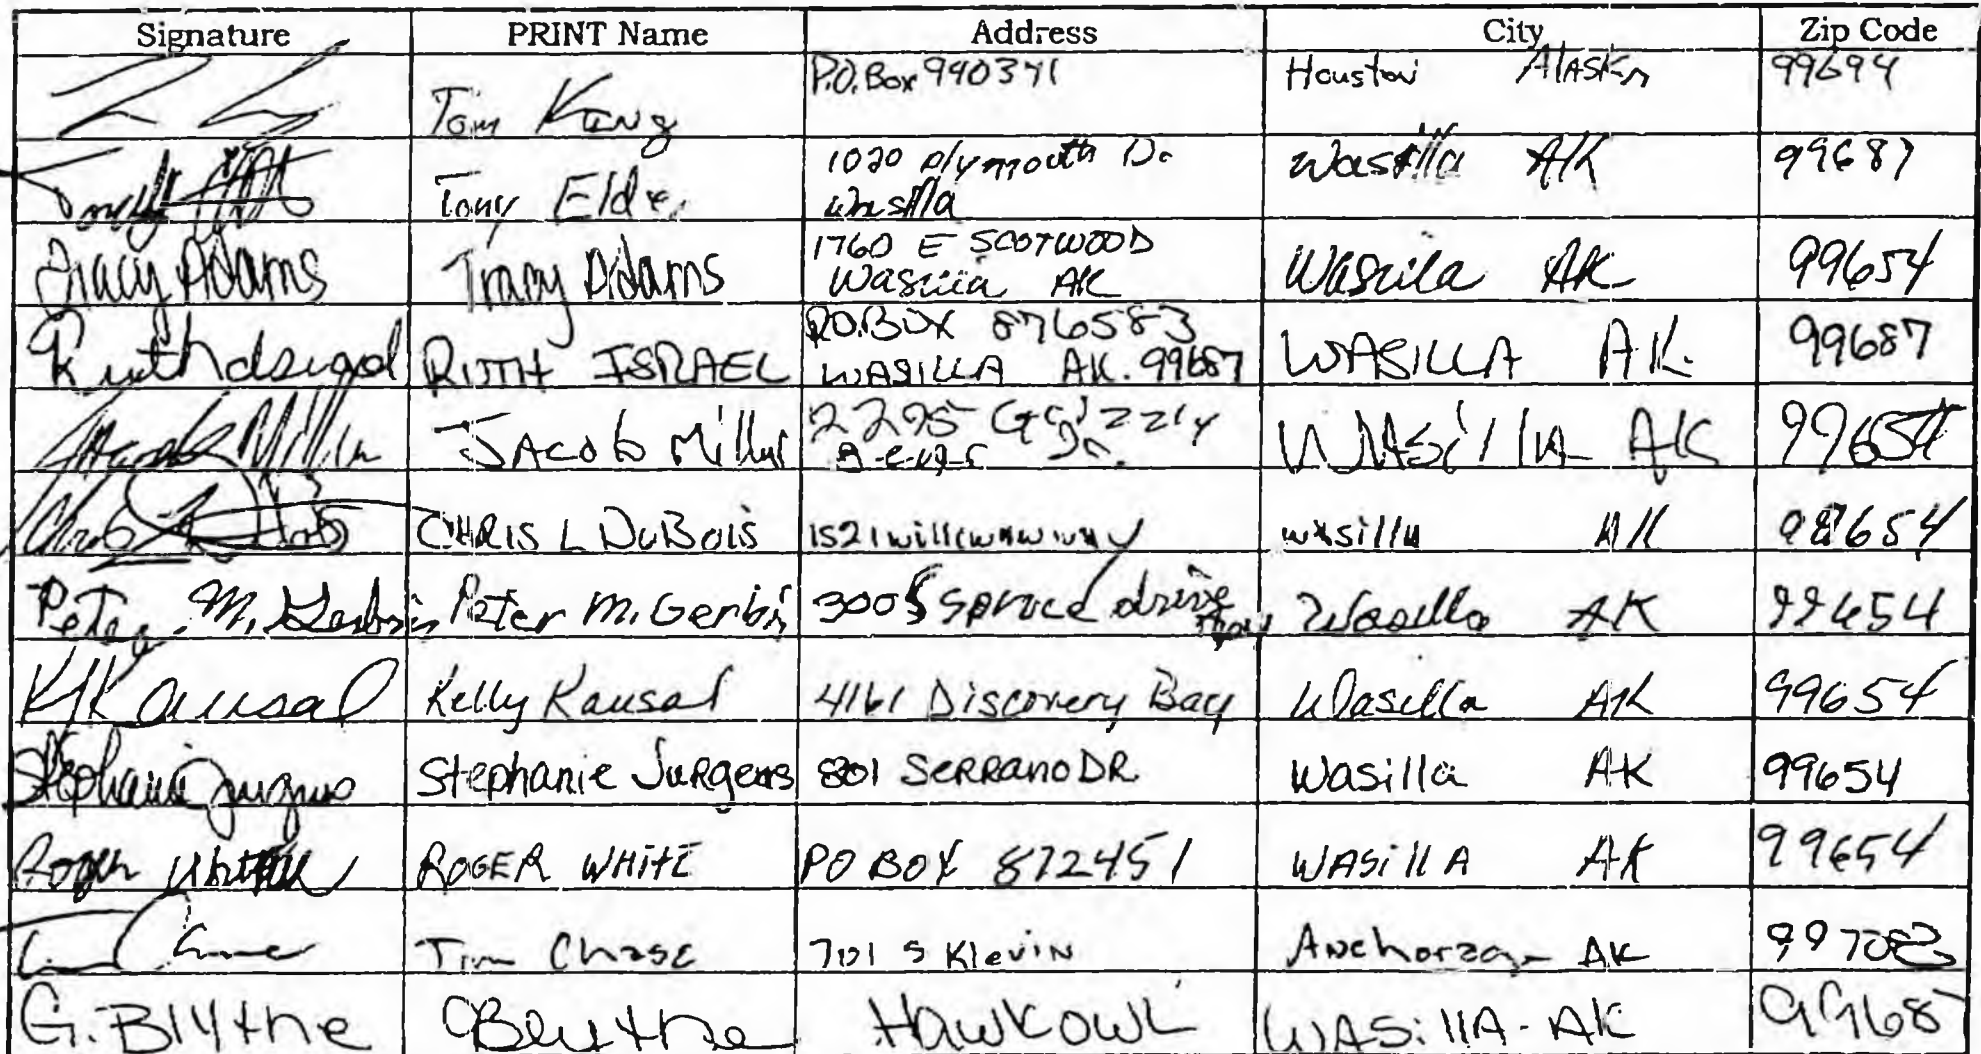 Signature PRINT Name Address City Zip Code
Tom King P.O. Box 940371 Houston Alaska 99694
Tony Elder 1020 Plymouth Dr Wasilla Wasilla AK 99687
Tracy Adams Tracy Adams 1760 E SCOTWOOD Wasilla AK Wasilla AK 99654
Ruth Israel RUTH ISRAEL P.O. BOX 876583 WASILLA AK. 99687 WASILLA AK. 99687
Jacob Miller JACOb Miller 2295 Grizzly Bear Dr. WASillA AK 99654
CHRIS L DuBois 1521 wasilla AK 99654
Peter M. Gerbin Peter M. Gerbin 3005 Spruce drive Wasilla AK 99654
K Kausal Kelly Kausal 4161 Discovery Bay Wasilla AK 99654
Stephanie Jurgens Stephanie Jurgens 801 SeRRano DR Wasilla AK 99654
Roger White ROGER WHitE PO BOX 872451 WASillA AK 99654
Tim Chase 701 S Klevin AK
G. Blythe Blythe HawkOwl WASillA - AK 99687